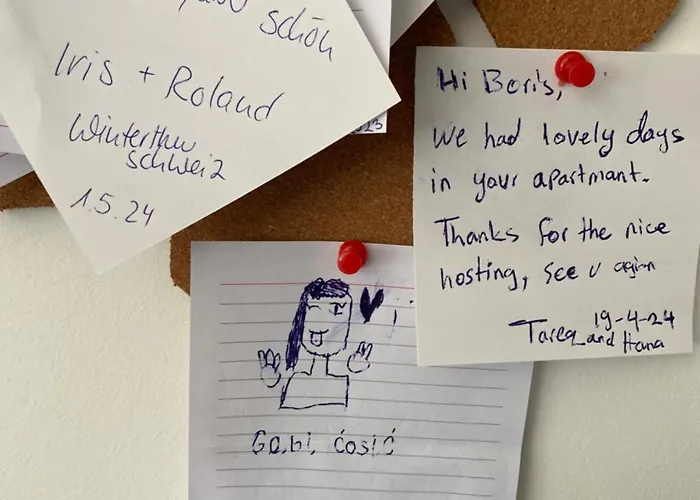 schön
Iris + Roland
Winterthur
Schweiz
1.5.24
Hi Boris,
We had lovely days
in your apartmant.
Thanks for the nice
hosting, see u agin
19-4-24
Tareq and Hana
Gabi, ćosić